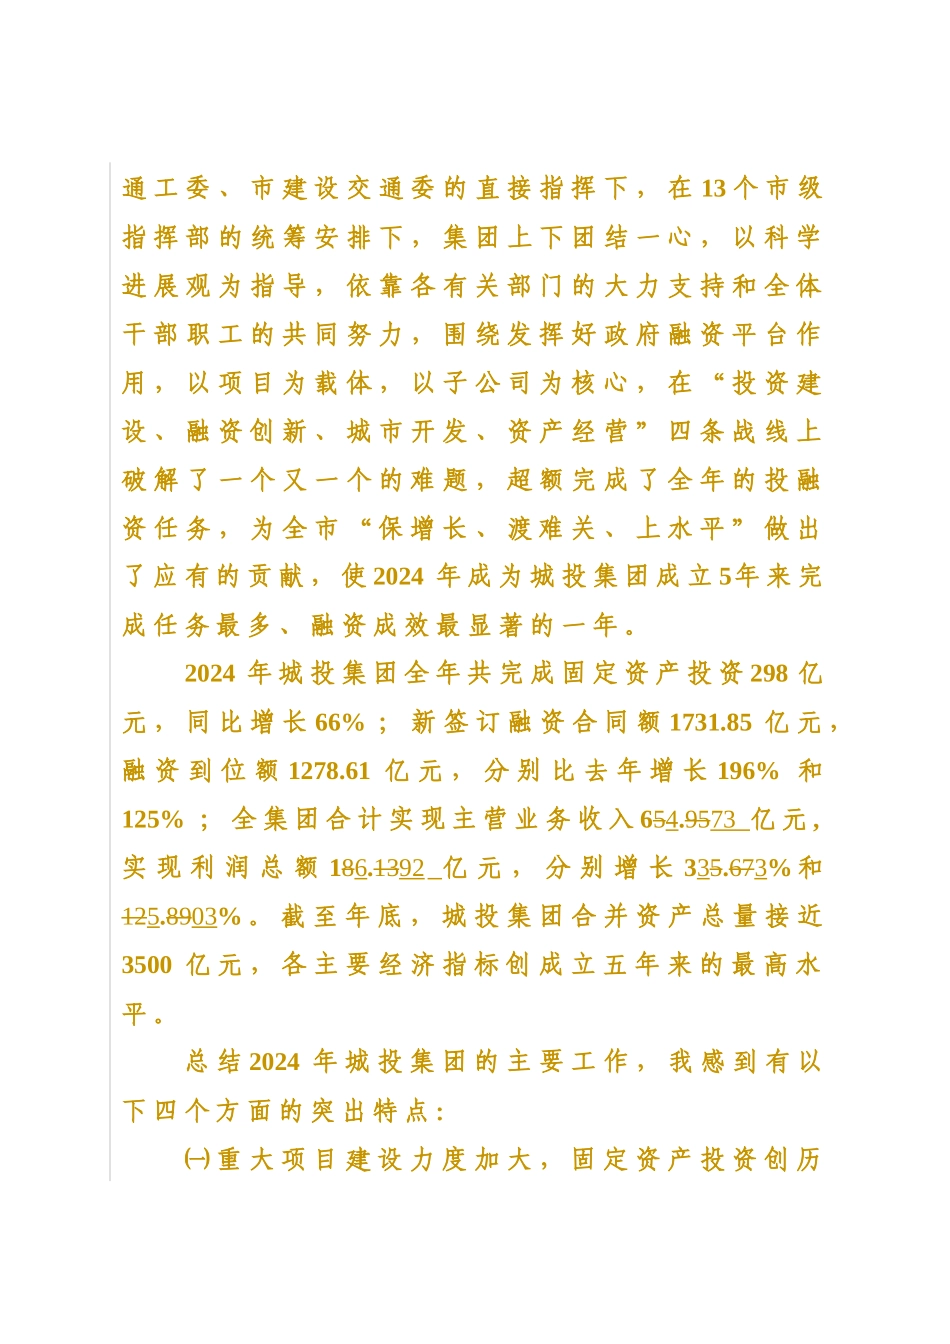 通工委、市建设交通委的直接指挥下，在13个市级
指挥部的统筹安排下，集团上下团结一心，以科学
进展观为指导，依靠各有关部门的大力支持和全体
干部职工的共同努力，围绕发挥好政府融资平台作
用，以项目为载体，以子公司为核心，在“投资建
设、融资创新、城市开发、资产经营”四条战线上
破解了一个又一个的难题，超额完成了全年的投融
资任务，为全市“保增长、渡难关、上水平”做出
了应有的贡献，使2024 年成为城投集团成立5年来完
成任务最多、融资成效最显著的一年。
2024 年城投集团全年共完成固定资产投资298 亿
元，同比增长66%；新签订融资合同额1731.85 亿元，
融资到位额1278.61 亿元，分别比去年增长196% 和
125%；全集团合计实现主营业务收入654.9573 亿元，
实现利润总额186.1392 亿元，分别增长335.673%和
125.8903%。截至年底，城投集团合并资产总量接近
3500 亿元，各主要经济指标创成立五年来的最高水
平。
总结2024 年城投集团的主要工作，我感到有以
下四个方面的突出特点：
㈠重大项目建设力度加大，固定资产投资创历